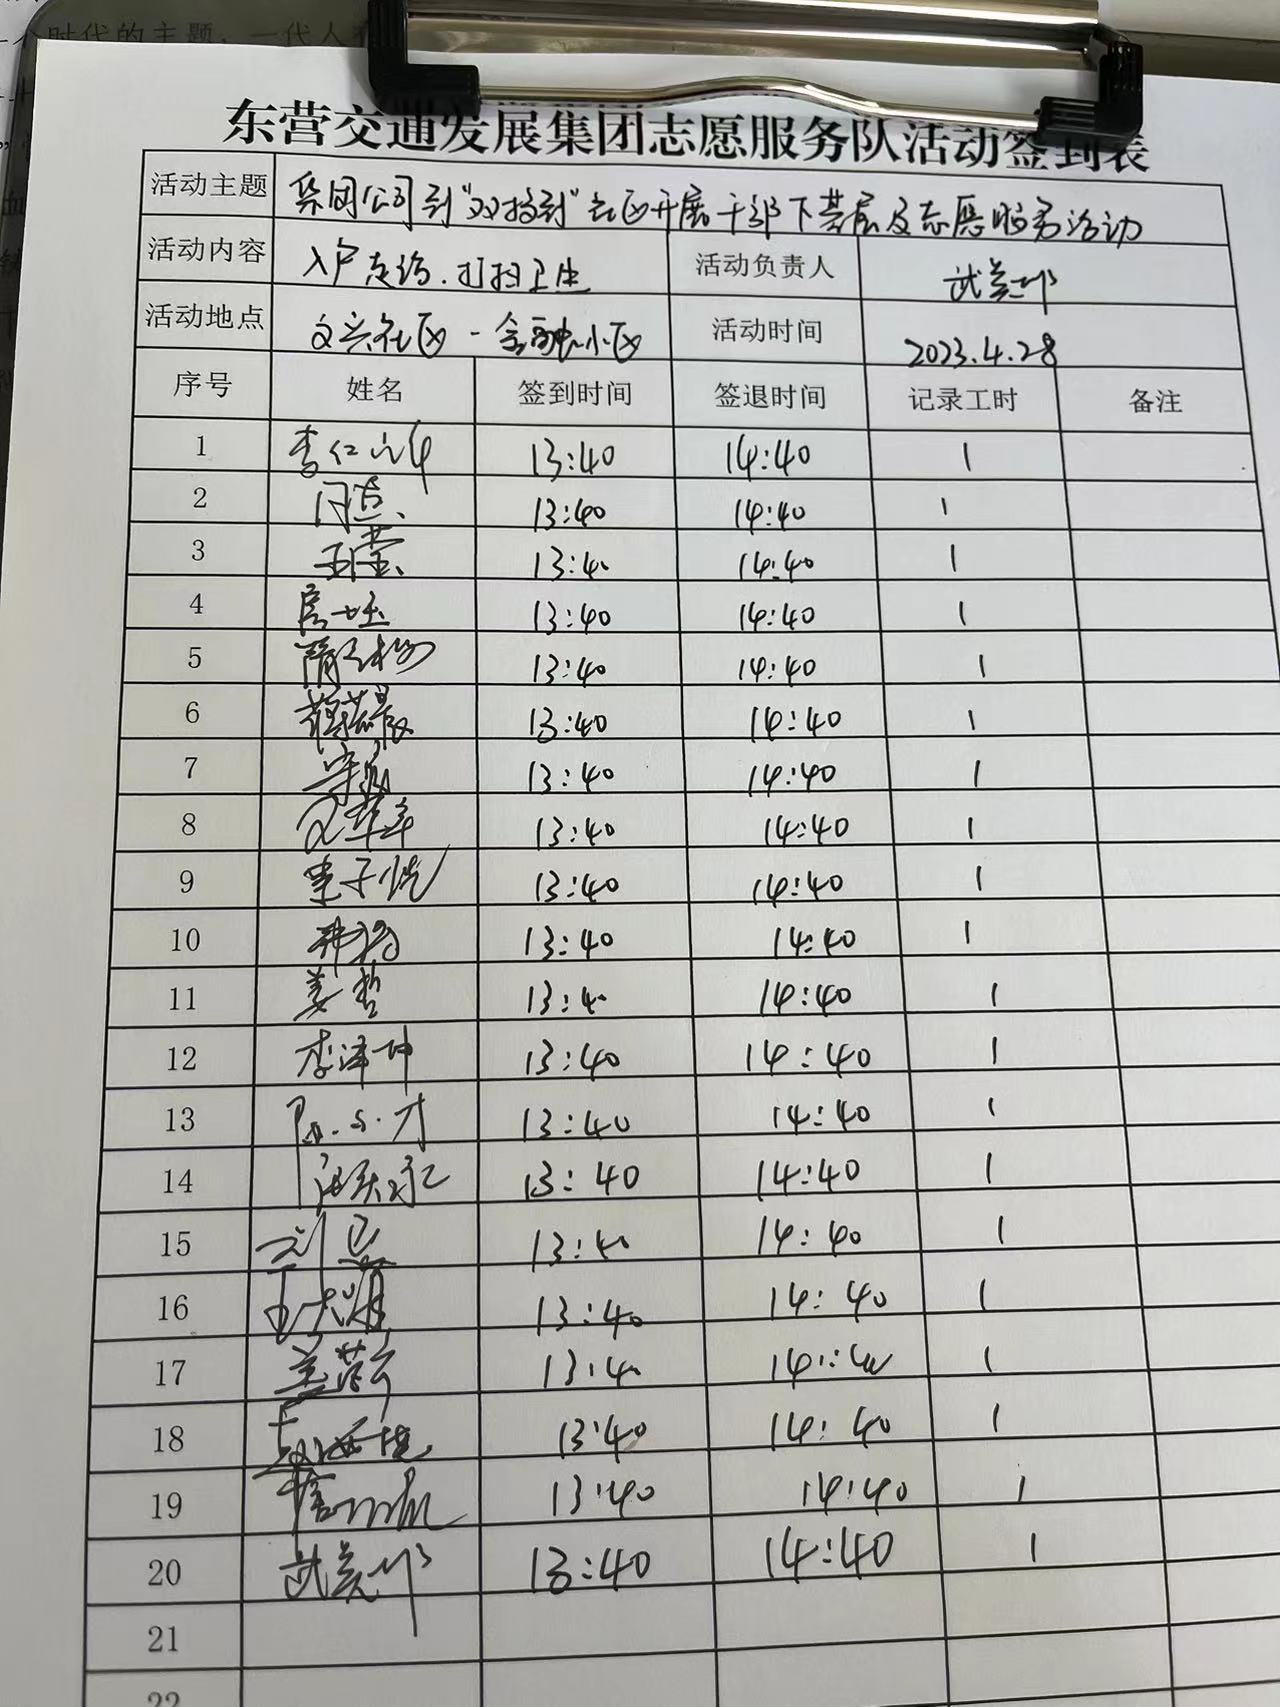 东营交通发展集团志愿服务队活动签到表
活动主题 集团公司到"双报到"社区开展干部下基层及志愿服务活动
活动内容 入户走访、打扫卫生 活动负责人
活动地点 文兴社区-金融小区 活动时间 2023.4.28
序号 姓名 签到时间 签退时间 记录工时 备注
1 13:40 14:40 1
2 13:40 14:40 1
3 13:40 14:40 1
4 13:40 14:40 1
5 13:40 14:40 1
6 13:40 14:40 1
7 13:40 14:40 1
8 13:40 14:40 1
9 13:40 14:40 1
10 13:40 14:40 1
11 姜哲 13:40 14:40 1
12 李泽坤 13:40 14:40 1
13 13:40 14:40 1
14 13:40 14:40 1
15 13:40 14:40 1
16 13:40 14:40 1
17 13:40 14:40 1
18 13:40 14:40 1
19 13:40 14:40 1
20 13:40 14:40 1
21
22